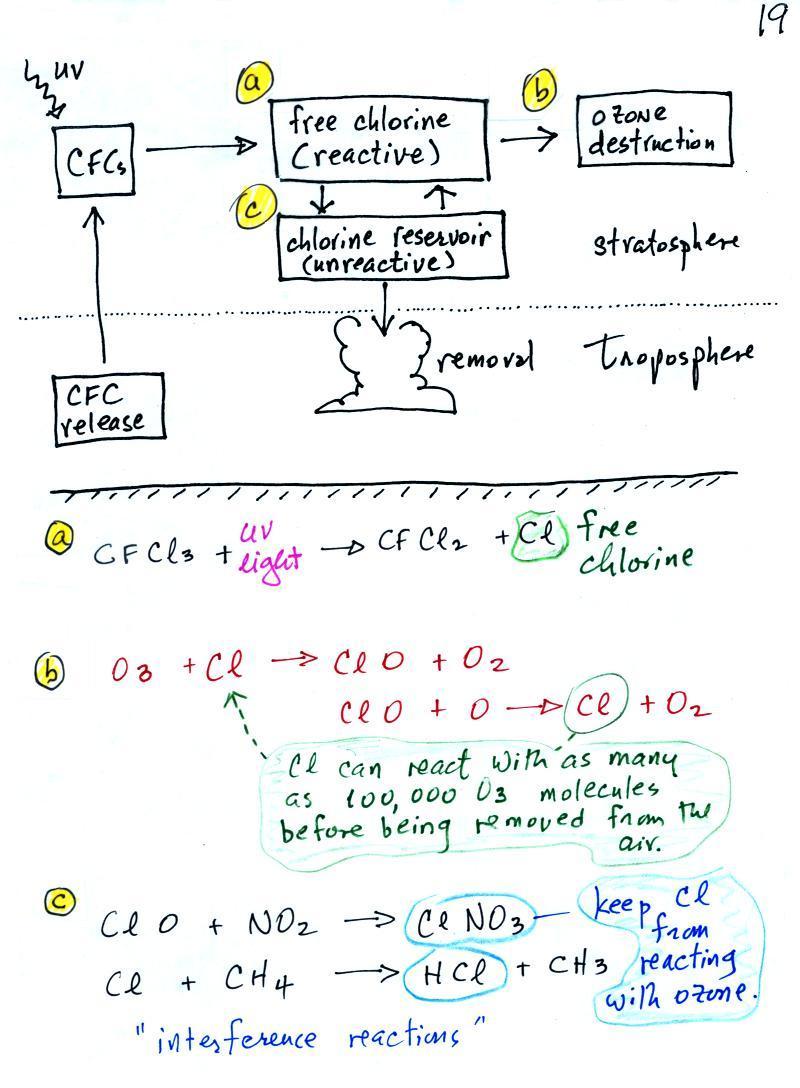 19
uv
a
b
CFCs
free chlorine
(reactive)
ozone
destruction
c
chlorine reservoir
(unreactive)
stratosphere
removal
troposphere
CFC
release
a CFCl3 + uv light → CFCl2 + Cl free chlorine
b O3 + Cl → ClO + O2
ClO + O → Cl + O2
Cl can react with as many
as 100,000 O3 molecules
before being removed from the
air.
c
ClO + NO2 → ClNO3
Cl + CH4 → HCl + CH3
keep Cl
from
reacting
with ozone.
"interference reactions"